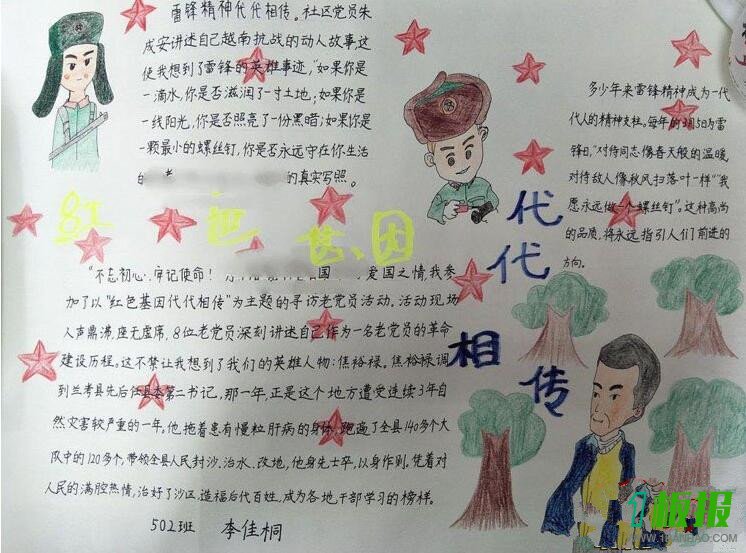 雷锋精神代代相传。社区党员朱
成安讲述自己越南抗战的动人故事这
使我想到了雷锋的英雄事迹,"如果你是
一滴水,你是否滋润了一寸土地;如果你是
一线阳光,你是否照亮了一份黑暗;如果你是
一颗最小的螺丝钉,你是否永远守在你生活
的
的真实写照。
多少年来雷锋精神成为一代
代人的精神支柱。每年的3月5日为雷
锋日,"对待同志像春天般的温暖
对待敌人像秋风扫落叶一样""我
愿永远做一个螺丝钉"。这种高尚
的品质,将永远指引人们前进的
方向。
红色基因
代代相传
"不忘初心,牢记使命!
国
爱国之情,我参
加了以"红色基因代代相传"为主题的寻访老党员活动。活动现场
人声鼎沸,座无虚席,8位老党员深刻讲述自己作为一名老党员的革命
建设历程。这不禁让我想到了我们的英雄人物:焦裕禄。焦裕禄调
到兰考县先后任县委第二书记,那一年,正是这个地方遭受连续3年自
然灾害较严重的一年。他拖着患有慢粒肝病的身体,跑遍了全县140多个大
队中的120多个,带领全县人民封沙、治水、改地,他身先士卒,以身作则,凭着对
人民的满腔热情,治好了沙区,造福后代百姓,成为各地干部学习的榜样。
502班 李佳桐
板报
WWW.1BANBAO.COM